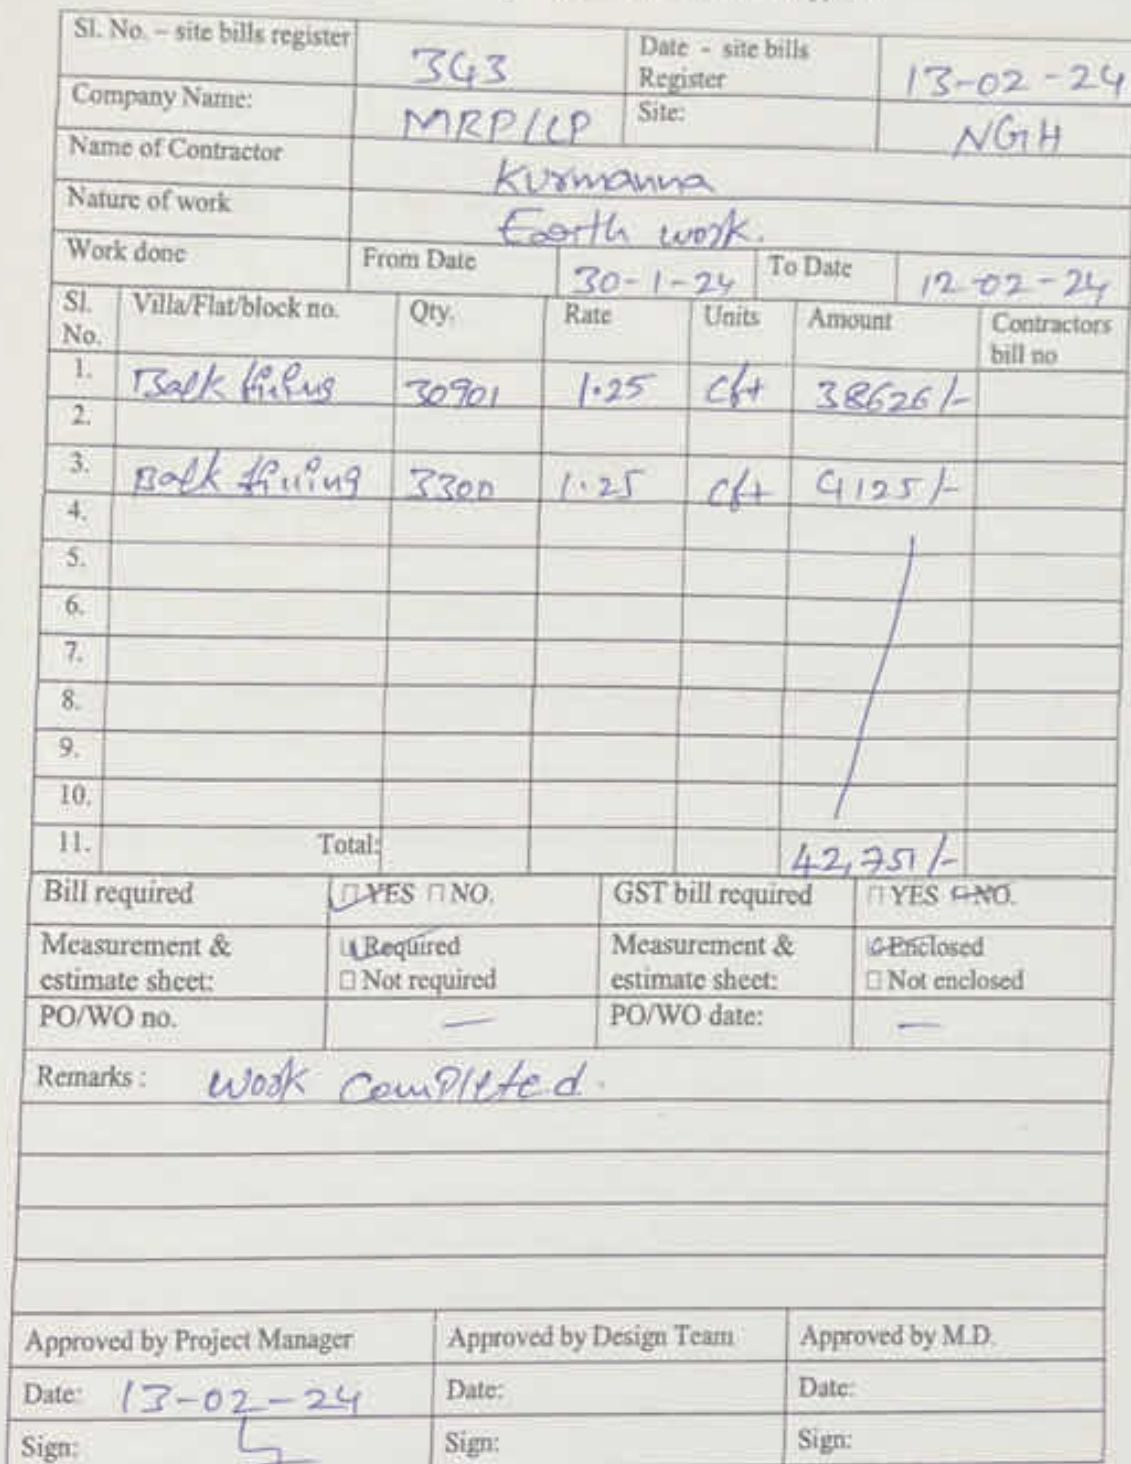 Sl. No. – site bills register 343 Date - site bills Register 13-02-24
Company Name: MRPLLP Site: NGH
Name of Contractor Kurmanna
Nature of work Earth work.
Work done From Date 30-1-24 To Date 12-02-24
Sl. No. Villa/Flat/block no. Qty. Rate Units Amount Contractors bill no
1. Back filling 30901 1.25 Cft 38626/-
2.
3. Back filling 3300 1.25 Cft 4125/-
4.
5.
6.
7.
8.
9.
10.
11. Total: 42,751/-
Bill required YES NO. GST bill required YES NO.
Measurement & estimate sheet: Required Measurement & estimate sheet: Enclosed
Not required Not enclosed
PO/WO no. — PO/WO date: —
Remarks : Work Completed.
Approved by Project Manager Approved by Design Team Approved by M.D.
Date: 13-02-24 Date: Date:
Sign: Sign: Sign: